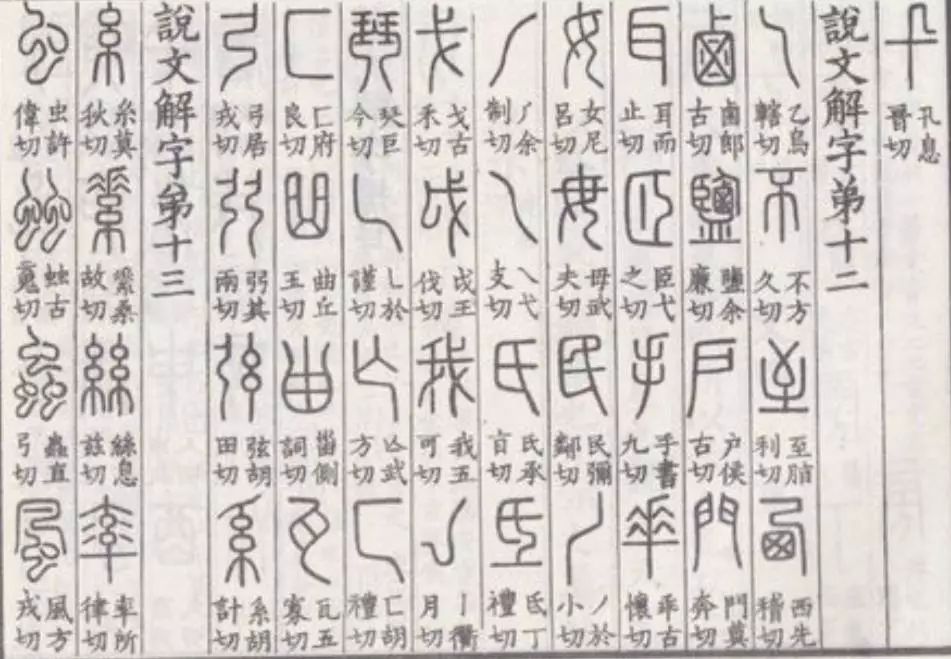 卂 卂息晉切
說文解字弟十二
乙 乙烏轄切 不 不方久切 至 至脂利切 西 西先稽切
鹵 鹵郎古切 鹽 鹽余廉切 戶 戶侯古切 門 門莫奔切
耳 耳而止切 𦣞 𦣞弋之切 手 手書九切 𠦬 乖古懷切
女 女尼呂切 毋 毋武夫切 民 民彌鄰切 丿 丿於小切
𠂆 𠂆余制切 乁 乁弋支切 氏 氏承旨切 氐 氐丁禮切
戈 戈古禾切 戉 戉王伐切 我 我五可切 亅 亅衢月切
琴 珡巨今切 乚 乚於謹切 亾 亾武方切 匸 匸胡禮切
匚 匚府良切 曲 曲丘玉切 甾 甾側詞切 瓦 瓦五寡切
弓 弓居戎切 弜 弜其兩切 弦 弦胡田切 系 系胡計切
說文解字弟十三
糸 糸莫狄切 素 素桑故切 絲 絲息茲切 率 率所律切
虫 虫許偉切 䖵 䖵古䰟切 蟲 蟲直弓切 風 風方戎切